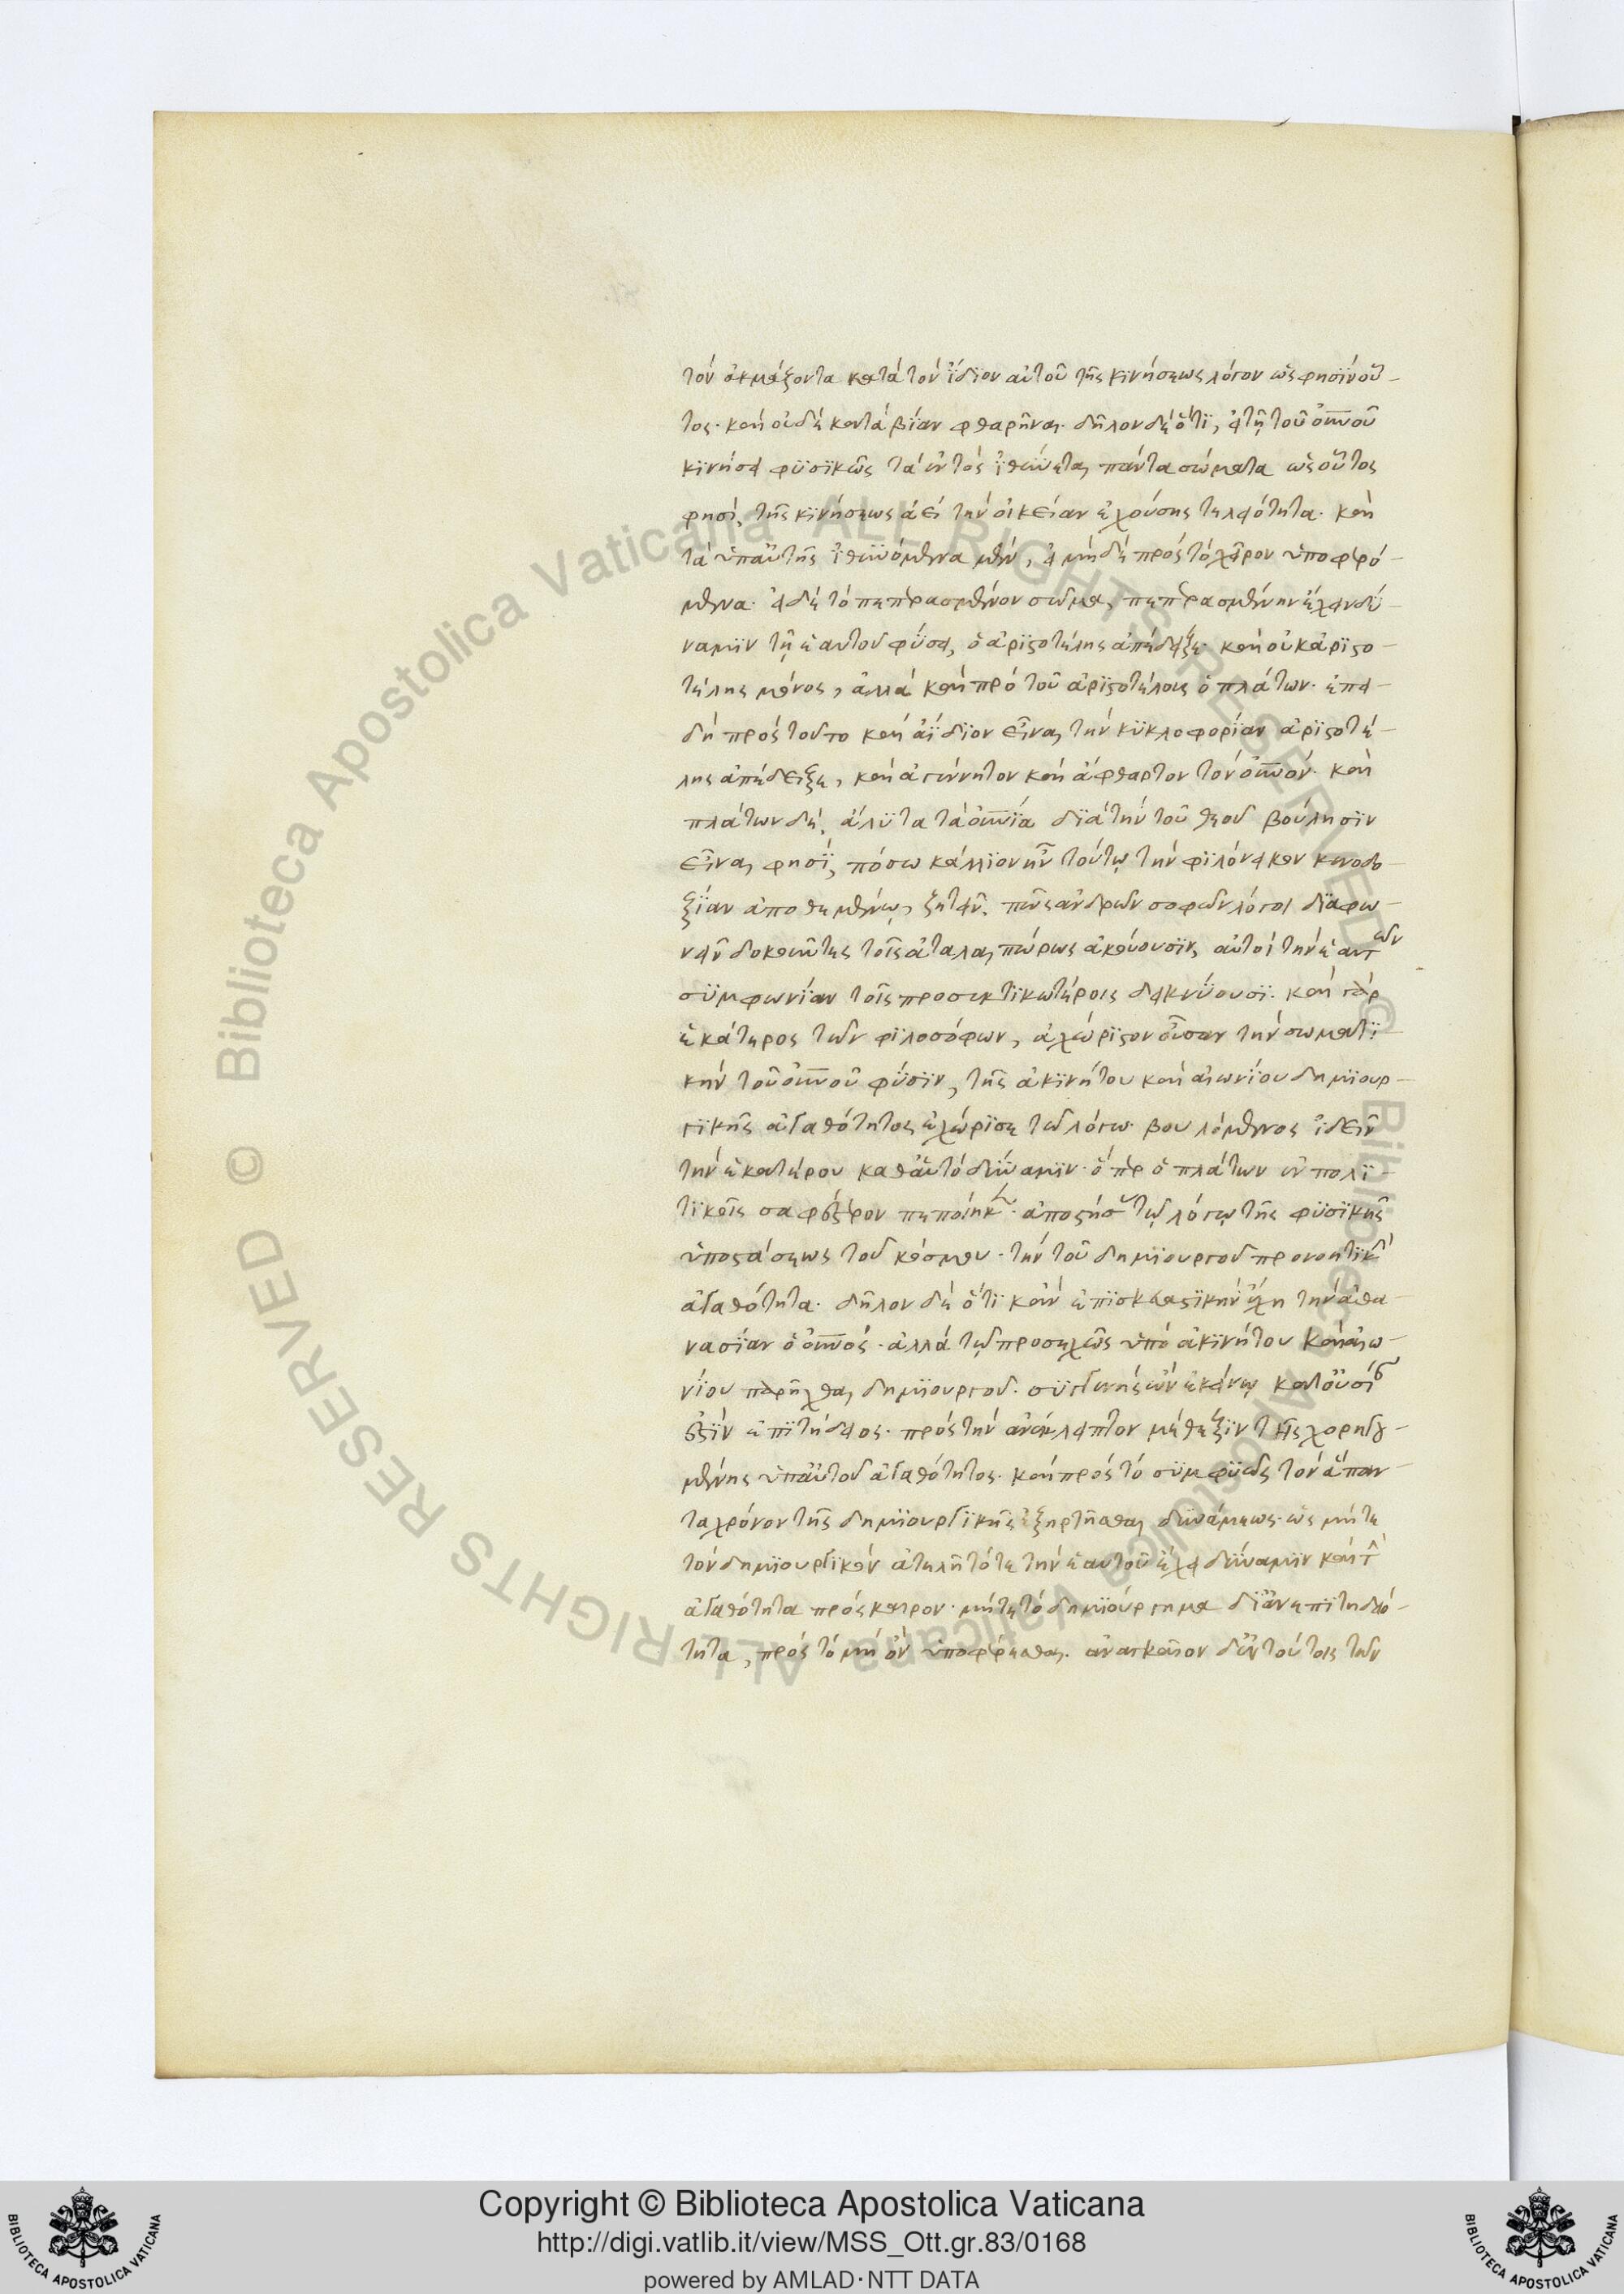 τὸν ἀκμάζοντα κατὰ τὸν ἴδϊον αὐτοῦ τῆς κϊνήσεως λόγον ὥς φησϊν οὗ-
τος· καὶ οὐδὲ κατὰ βίαν φθαρῆναι· δῆλον δὲ ὅτϊ, εἰ τῇ τοῦ οὐνοῦ
κϊνήσει φϋσϊκῶς τὰ ἐντὸς ϊθύνεται πάντα σώματα ὡς οὗτος
φησὶ, τῆς κϊνήσεως ἀεὶ τὴν οἰκείαν ἐχούσης τελειότητα· καὶ
τὰ ὑπ' αὐτῆς ϊθυνόμενα μὲν, εἰ μηδὲ πρὸς τὸ χεῖρον ὑποφερό-
μενα· εἰ δὲ τὸ πεπερασμένον σῶμα, πεπερασμένην ἔχειν δύ-
ναμϊν τῇ ἑαυτοῦ φύσει, ὁ ἀρϊστοτέλης ἀπέδειξε· καὶ οὐκ ἀρϊστο-
τέλης μόνος, ἀλλὰ καὶ πρὸ τοῦ ἀρϊστοτέλους ὁ πλάτων· ἐπει-
δὴ πρὸς τοῦτο καὶ ἀΐδϊον εἶναι τὴν κϋκλοφορίαν ἀρϊστοτέ-
λης ἀπέδειξε, καὶ ἀγέννητον καὶ ἄφθαρτον τὸν οὐνόν· καὶ
πλάτων δὲ, ἄλϋτα τὰ οὐνία δϊὰ τὴν τοῦ θεοῦ βούλησϊν
εἶναι φησὶ, πόσω κάλλϊον ἦν τούτῳ τὴν φϊλόνεικον κενοδο-
ξίαν ἀποθεμένῳ, ζητεῖν· πῶς ἀνδρῶν σοφῶν λόγοι δϊαφω-
νεῖν δοκοῦντες τοῖς ἀταλαιπώρως ἀκούουσϊν, αὐτοὶ τὴν ἑαυτῶν
σϋμφωνίαν τοῖς προσεκτϊκωτέροις δεικνύουσϊ· καὶ γὰρ
ἑκάτερος τῶν φϊλοσόφων, ἀχώρϊστον οὖσαν τὴν σωματϊ-
κὴν τοῦ οὐνοῦ φύσϊν, τῆς ἀκϊνήτου καὶ αἰωνίου δημϊουρ-
γϊκῆς ἀγαθότητος ἐχώρϊσε τῶ λόγω· βουλόμενος ἰδεῖν
τὴν ἑκατέρου καθ' αὑτὸ δύναμϊν· ὅπερ ὁ πλάτων ἐν πολϊ-
τϊκοῖς σαφέστερον πεποίηκεν· ἀποστήσας τῷ λόγῳ τῆς φϋσϊκῆς
ὑποστάσεως τοῦ κόσμου· τὴν τοῦ δημϊουργοῦ προνοητϊκὴν
ἀγαθότητα· δῆλον δὲ ὅτϊ κἂν ἐπϊσκευαστϊκὴν ἔχη τὴν ἀθα-
νασίαν ὁ οὐνός· ἀλλὰ τῷ προσεχῶς ὑπὸ ἀκϊνήτου καὶ αἰω-
νίου παρῆχθαι δημϊουργοῦ· σϋγγενὴς ὢν ἐκείνῳ κατ' οὐσίαν
ἐστϊν ἐπϊτήδειος· πρὸς τὴν ἀνέκλειπτον μέθεξϊν τῆς χορηγου-
μένης ὑπ' αὐτοῦ ἀγαθότητος· καὶ πρὸς τὸ σϋμφϋῶς τὸν ἅπαν-
τα χρόνον τῆς δημϊουργϊκῆς ἐξηρτῆσθαι δϋνάμεως· ὡς μήτε
τὸν δημϊουργϊκὸν ἀτελῆ τότε τὴν ἑαυτοῦ ἔχει δύναμϊν καὶ τὴν
ἀγαθότητα πρόσκαιρον· μήτε τὸ δημϊούργημα δϊ' ἀνεπϊτηδειό-
τητα, πρὸς τὸ μὴ ὂν ὑποφέρεσθαι· ἀναγκαῖον δ' ἐν τούτοις τῶν
Copyright © Biblioteca Apostolica Vaticana
http://digi.vatlib.it/view/MSS_Ott.gr.83/0168
powered by AMLAD·NTT DATA
BIBLIOTECA APOSTOLICA VATICANA
BIBLIOTECA APOSTOLICA VATICANA
© Biblioteca Apostolica Vaticana ALL RIGHTS RESERVED
© Biblioteca Apostolica Vaticana ALL RIGHTS RESERVED